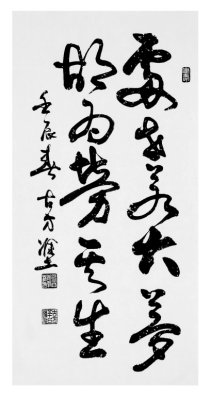 處世若大夢
胡為勞其生
壬辰春古方